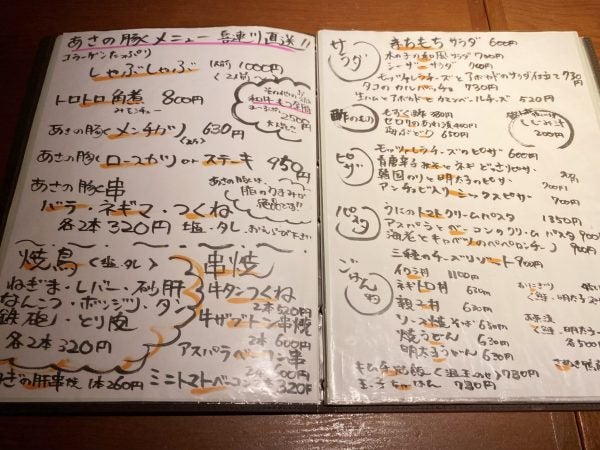 あさの豚くメニュー 喜連川直送!!
コラーゲンたっぷり
しゃぶしゃぶ 1人前 1000円
トロトロ角煮 800円
あさの豚く メンチカツ 630円
あさの豚く ロースカツ or ステーキ 950円
あさの豚串
バラ・ネギマ・つくね
各2本320円 塩・タレ
あさの豚は、
脂のうまみが
絶品です!!
2500円
焼鳥 〈塩・タレ〉
ねぎま・レバー・砂肝
なんこつ・ボッジリ・タン
鉄砲・とり皮
各2本320円
あさの肝串焼 1本260円
串焼
牛タンつくね
2本520円
牛ザブトン串焼
2本600円
アスパラベーコン串
ミニトマトベーコン 320円
サラダ
まちもちサラダ 600円
水の子の和風サラダ 700円
シーザーサラダ 700円
モッツァレラチーズとアボカドのサラダ仕立て 730円
タコのカルパッチョ 730円
生ハムとアボカドとカマンベールチーズ 520円
酢のもの
もずく酢 380円
650円
200円
ピザ
モッツァレラチーズのピザ 600円
韓国のりと明太子のピザ
アンチョビ入りミックスピザ 700円
パスタ
うにのトマトクリームパスタ 1350円
アスパラとベーコンのクリームパスタ 900円
海老とキャベツのペペロンチーノ 900円
三種のチーズリゾット 900円
ごはん
イクラ丼 1100円
ネギトロ丼 630円
親子丼 630円
ソース焼そば 630円
焼うどん 630円
明太子うどん 630円
おにぎり
お茶漬
各500円